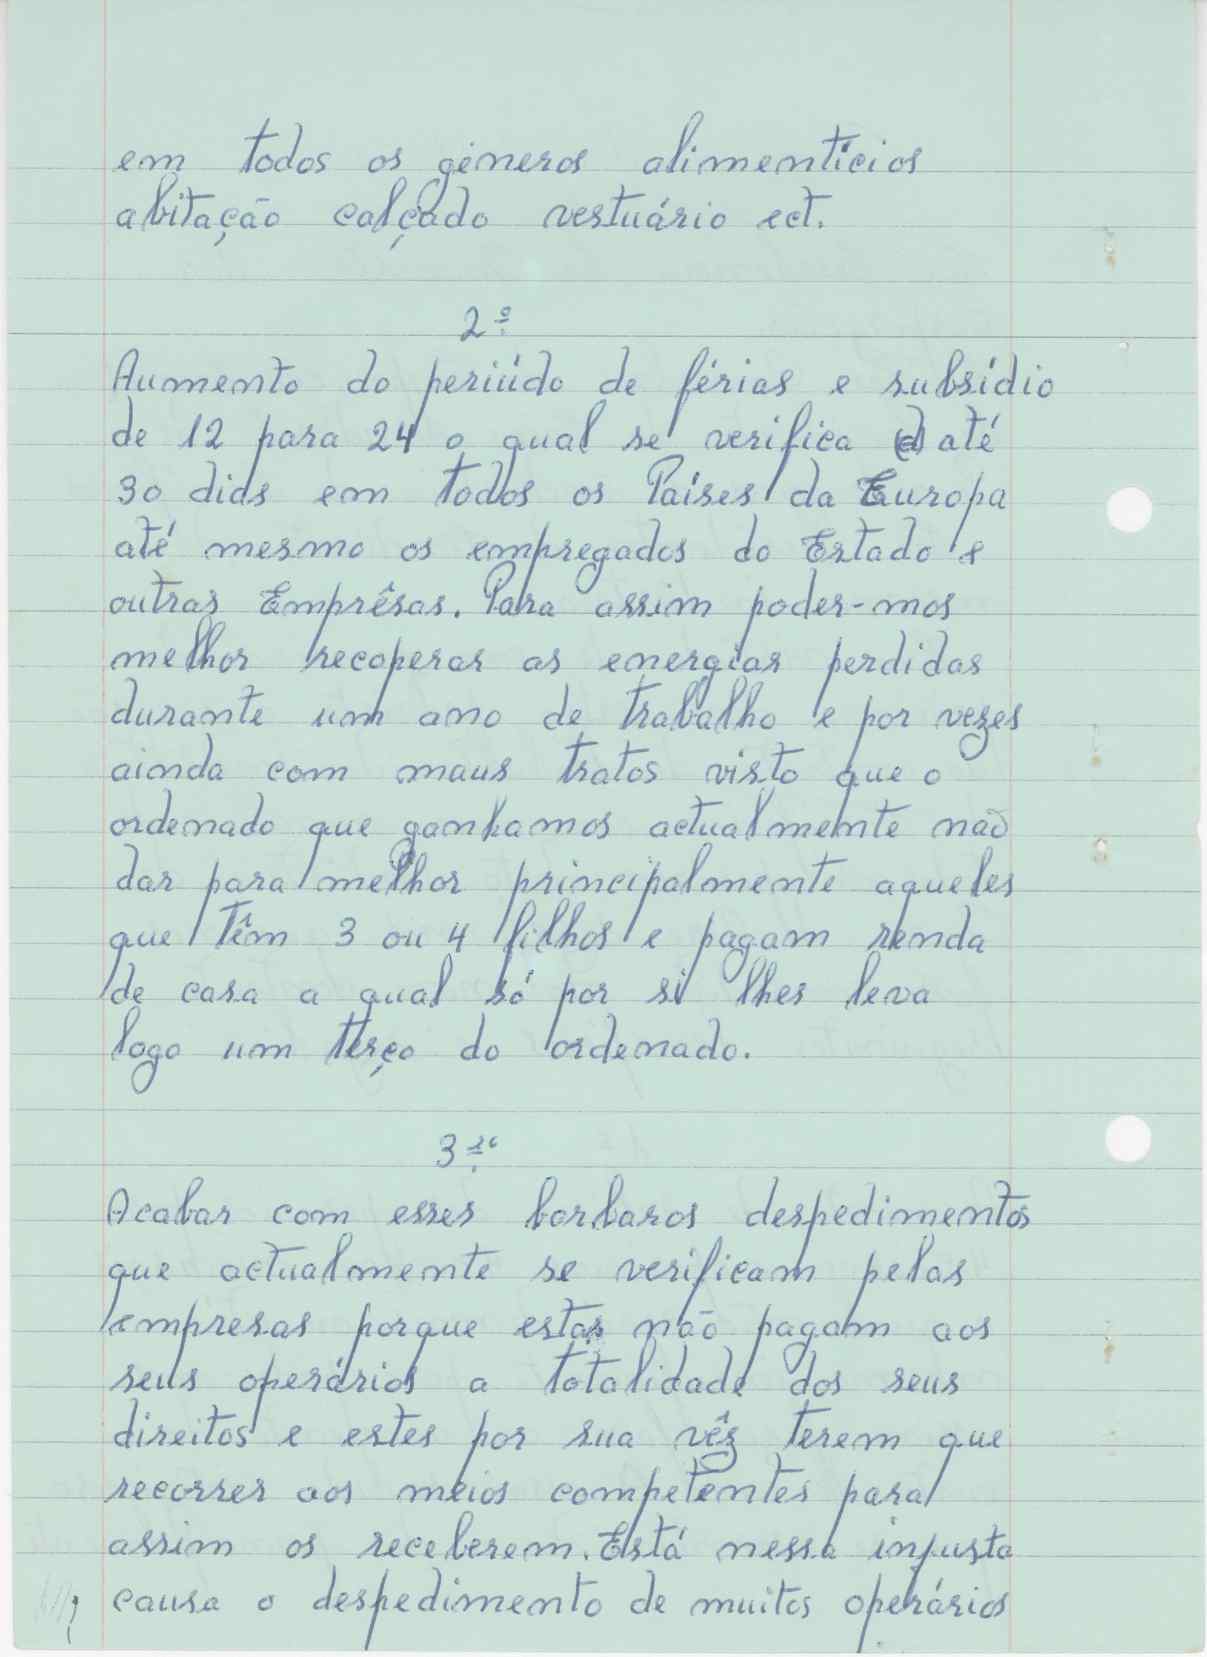 em todos os géneros alimentícios
abitação calçado vestuário ect.
2º
Aumento do periúdo de férias e subsídio
de 12 para 24 o qual se verifica até
30 dias em todos os Países da Europa
até mesmo os empregados do Estado e
outras Emprêsas. Para assim poder-mos
melhor recoperar as energias perdidas
durante um ano de trabalho e por vezes
ainda com maus tratos visto que o
ordenado que ganhamos actualmente não
dar para melhor principalmente aqueles
que têm 3 ou 4 filhos e pagam renda
de casa a qual só por si lhes leva
logo um terço do ordenado.
3º
Acabar com esses barbaros despedimentos
que actualmente se verificam pelas
empresas porque estas não pagam aos
seus operários a totalidade dos seus
direitos e estes por sua vêz terem que
recorrer aos meios competentes para
assim os receberem. Está nessa injusta
causa o despedimento de muitos operários